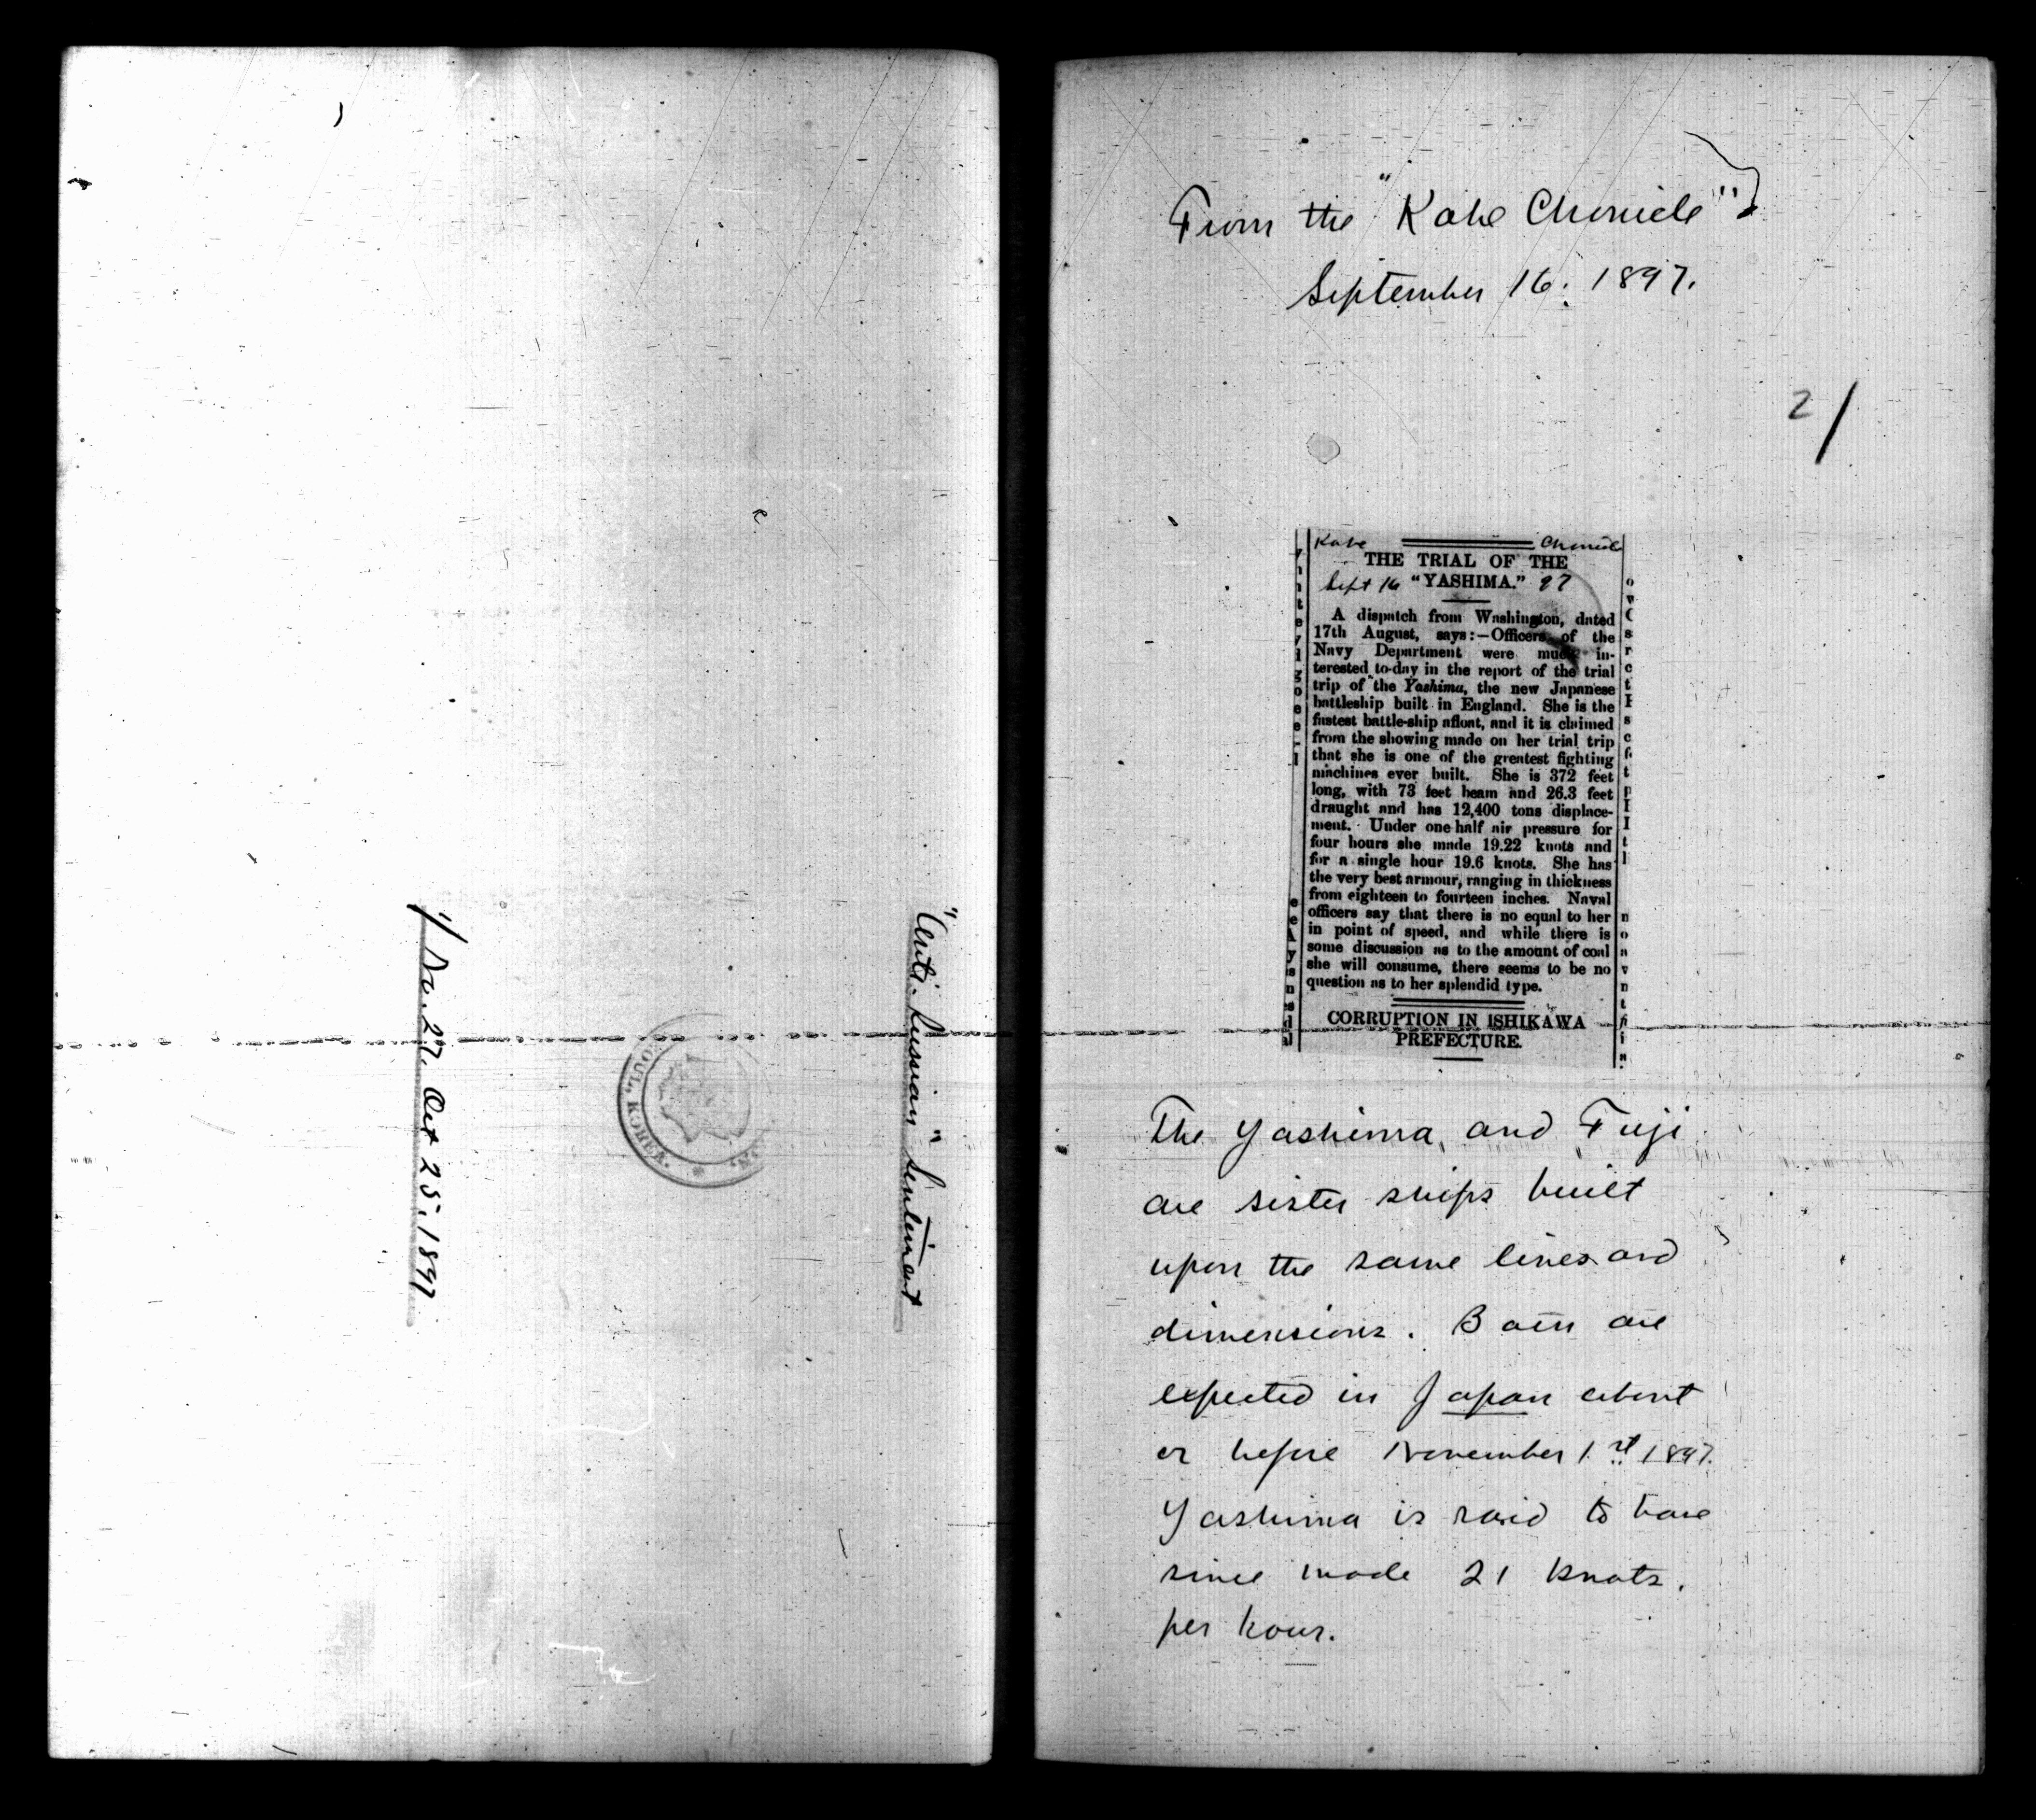 "Anti-Russian" Sentiment
1/ No. 27. Oct 25. 1897
OUL, KOREA.
From the "Kobe Chronicle"
September 16. 1897.
2/
Kobe Chronicle
THE TRIAL OF THE
Sept 16 "YASHIMA." 97
A dispatch from Washington, dated
17th August, says:—Officers of the
Navy Department were much in-
terested to-day in the report of the trial
trip of the Yashima, the new Japanese
battleship built in England. She is the
fastest battle-ship afloat, and it is claimed
from the showing made on her trial trip
that she is one of the greatest fighting
machines ever built. She is 372 feet
long, with 73 feet beam and 26.3 feet
draught and has 12,400 tons displace-
ment. Under one-half air pressure for
four hours she made 19.22 knots and
for a single hour 19.6 knots. She has
the very best armour, ranging in thickness
from eighteen to fourteen inches. Naval
officers say that there is no equal to her
in point of speed, and while there is
some discussion as to the amount of coal
she will consume, there seems to be no
question as to her splendid type.
CORRUPTION IN ISHIKAWA
PREFECTURE.
The Yashima and Fuji
are sister ships built
upon the same lines and
dimensions. Both are
expected in Japan about
or before November 1st 1897.
Yashima is said to have
since made 21 knots.
per hour.